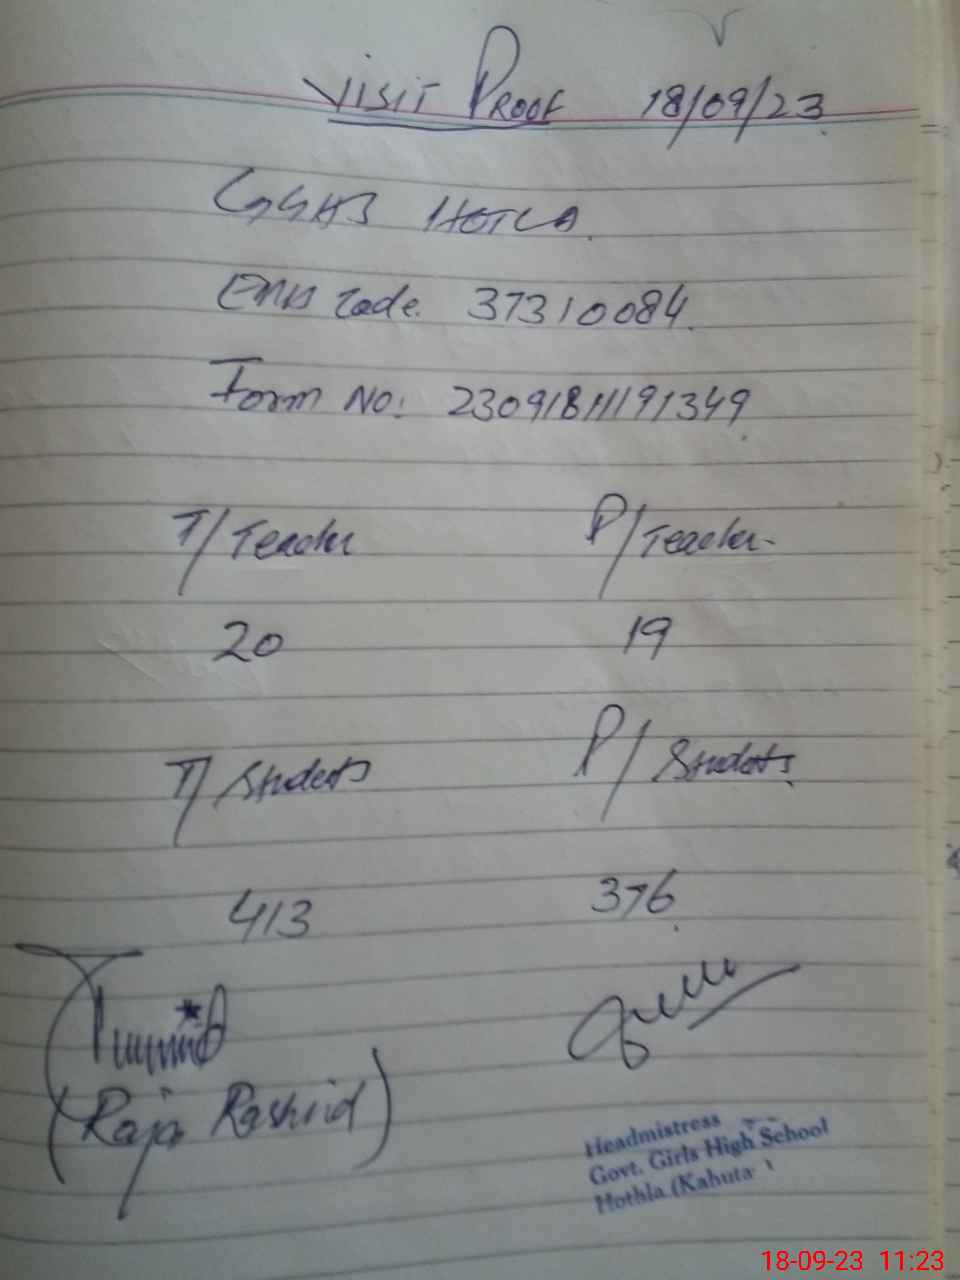 Visit Proof 18/09/23
GGHS HOTLA.
EMIS Code. 37310084.
Form No: 23091811191349
T/Teacher P/Teacher.
20 19
T/Students P/Students
413 376
(Raja Rashid)
Headmistress
Govt. Girls High School
Hothla (Kahuta
18-09-23 11:23